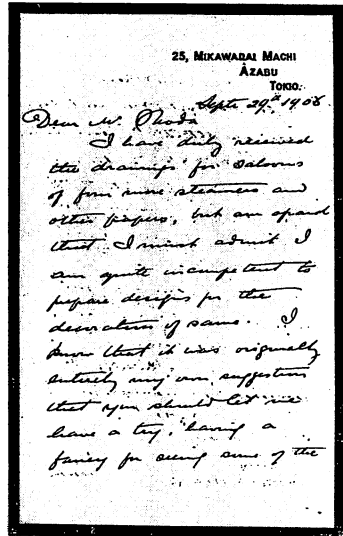 25, MIKAWADAI MACHI
AZABU
TOKIO.
Septr 29th 1906
Dear Mr. Shoda
I have duly received
the drawings for saloons
of four more steamers and
other papers, but am afraid
that I must admit I
am quite incompetent to
prepare designs for the
decoration of same. I
know that it was originally
entirely my own suggestion
that you should let me
have a try, having a
fancy for seeing some of the